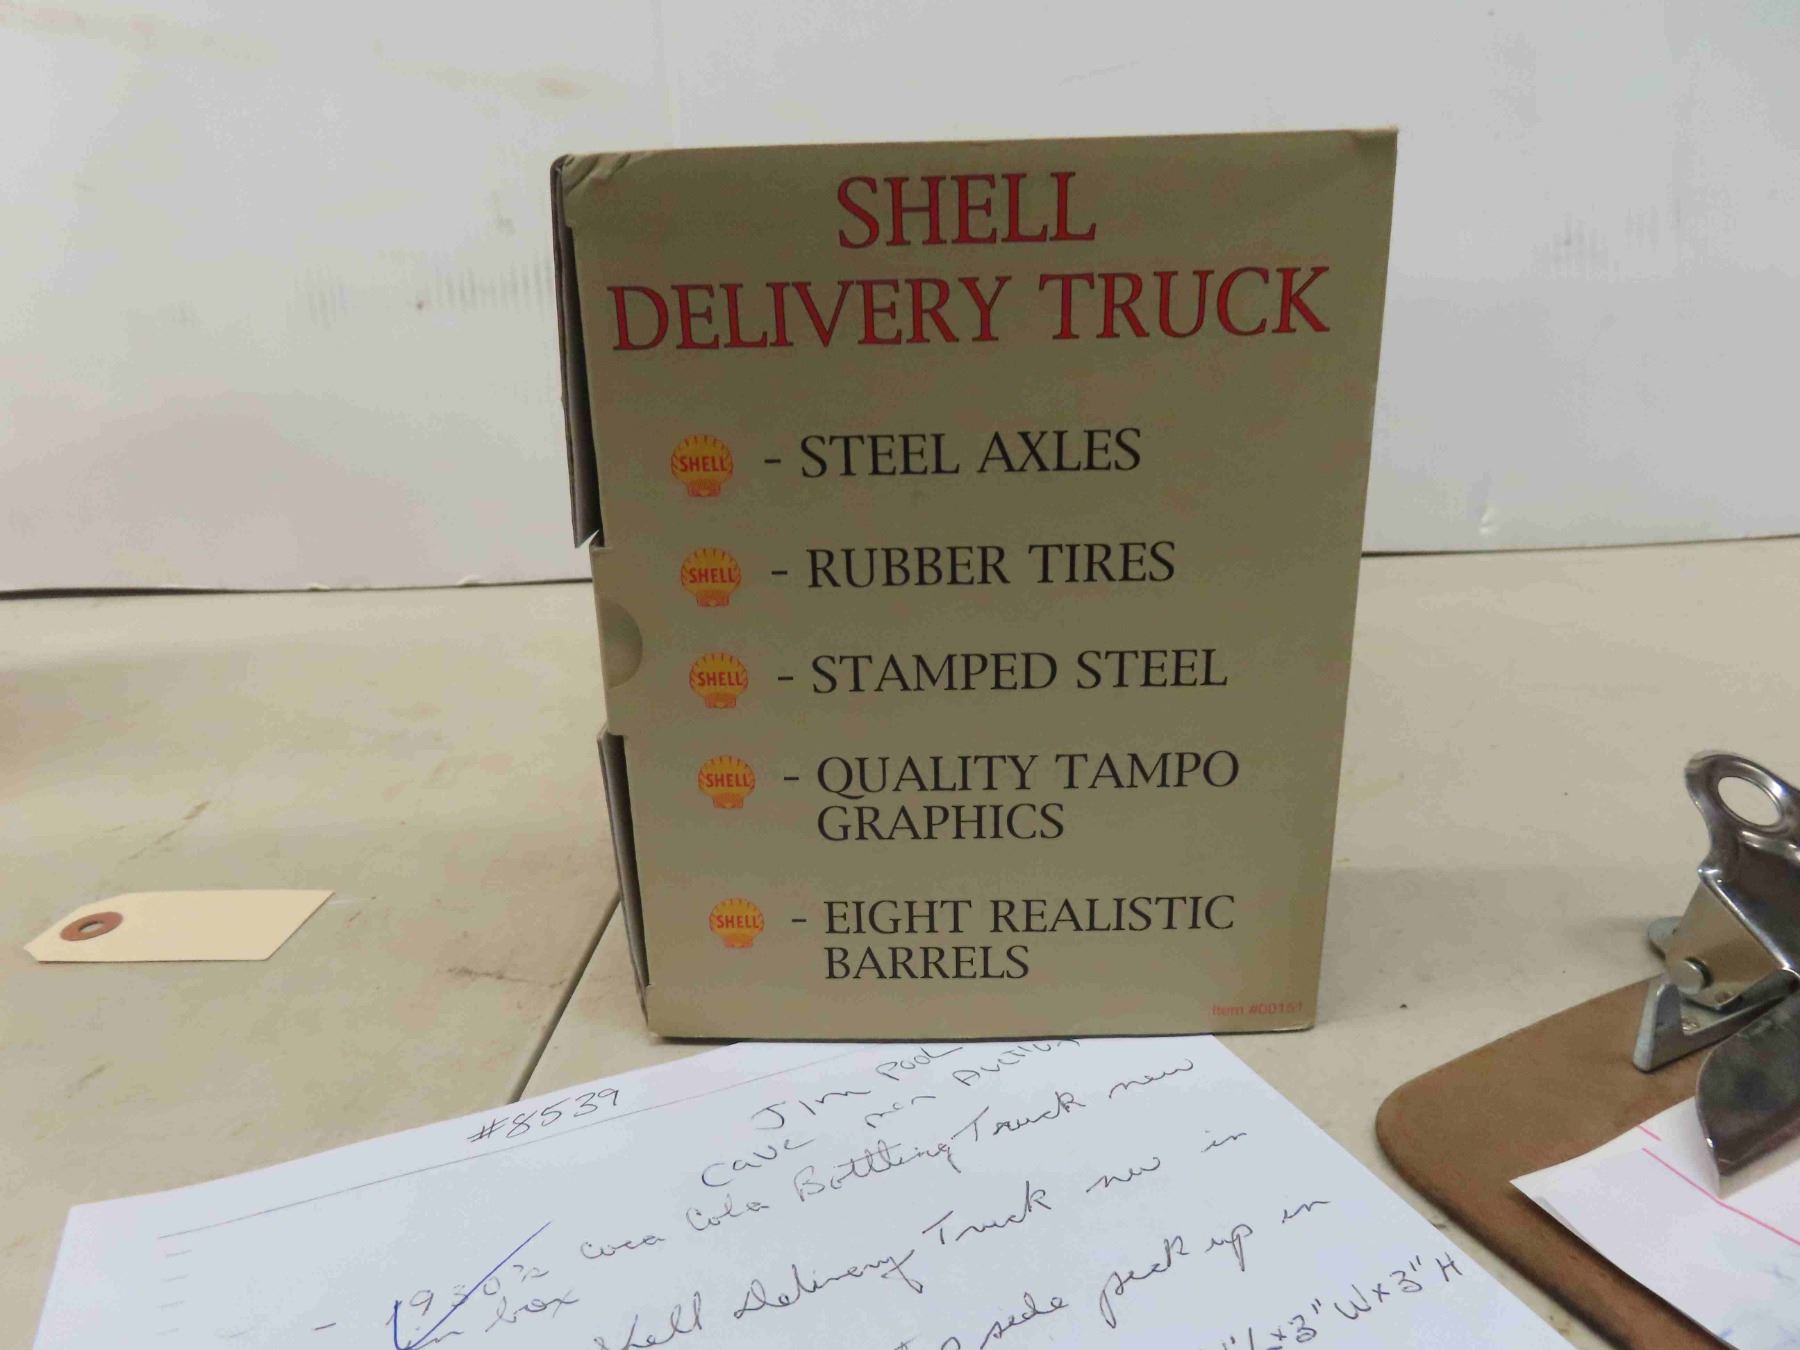 SHELL
DELIVERY TRUCK
SHELL - STEEL AXLES
SHELL - RUBBER TIRES
SHELL - STAMPED STEEL
SHELL - QUALITY TAMPO
GRAPHICS
SHELL - EIGHT REALISTIC
BARRELS
Item #00151
#8539
Jim Pool
Cave man Auction
- 1930's Coca Cola Bottling Truck new
in box
Shell Delivery Truck new in
side pick up in
3" W x 3" H